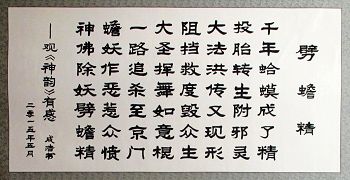 劈蟾精
千年蛤蟆成了精
投胎转生附邪灵
大法洪传又现形
阻挡救度毁众生
大圣挥舞如意棍
一路追杀至京门
蟾妖作恶惹众愤
神佛除妖劈蟾精
——观《神韵》有感
二零一五年五月 成浩书